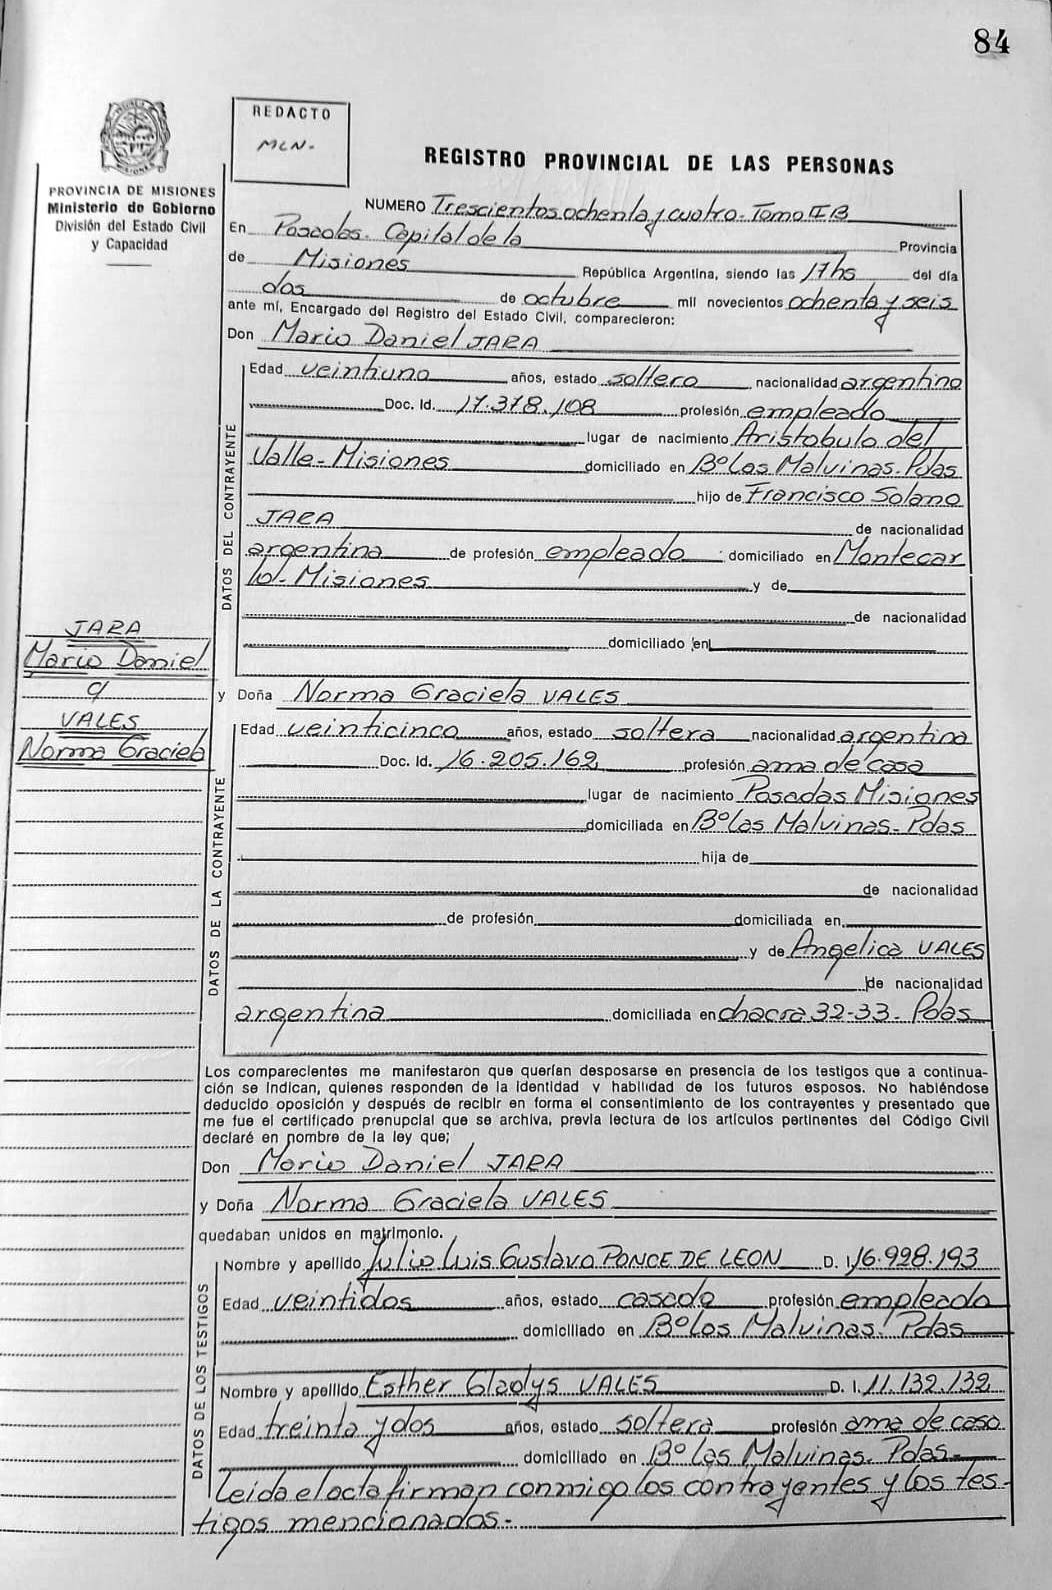 84
REDACTO
MLN.-
PROVINCIA DE MISIONES
Ministerio de Gobierno
División del Estado Civil
y Capacidad
REGISTRO PROVINCIAL DE LAS PERSONAS
NUMERO Trescientos ochenta y cuatro - Tomo II B
En Posadas. Capital de la Provincia
de Misiones República Argentina, siendo las 17 hs del día
dos de octubre mil novecientos ochenta y seis
ante mí, Encargado del Registro del Estado Civil, comparecieron:
Don Mario Daniel JARA
DATOS DEL CONTRAYENTE
Edad veintiuno años, estado soltero nacionalidad argentino
Doc. Id. 17.378.108 profesión empleado
lugar de nacimiento Aristobulo del
Valle - Misiones domiciliado en Bº Las Malvinas. Pdas
hijo de Francisco Solano
JARA de nacionalidad
argentina de profesión empleado domiciliado en Montecar
lo - Misiones y de
de nacionalidad
domiciliado en
JARA
Mario Daniel
c/
VALES
Norma Graciela
y Doña Norma Graciela VALES
DATOS DE LA CONTRAYENTE
Edad veinticinco años, estado soltera nacionalidad argentina
Doc. Id. 16.205.162 profesión ama de casa
lugar de nacimiento Posadas Misiones
domiciliada en Bº Las Malvinas - Pdas
hija de
de nacionalidad
de profesión domiciliada en
y de Angelica VALES
de nacionalidad
argentina domiciliada en chacra 32-33 - Pdas
Los comparecientes me manifestaron que querían desposarse en presencia de los testigos que a continua-
ción se indican, quienes responden de la identidad y habilidad de los futuros esposos. No habiéndose
deducido oposición y después de recibir en forma el consentimiento de los contrayentes y presentado que
me fue el certificado prenupcial que se archiva, previa lectura de los artículos pertinentes del Código Civil
declaré en nombre de la ley que;
Don Mario Daniel JARA
y Doña Norma Graciela VALES
quedaban unidos en matrimonio.
DATOS DE LOS TESTIGOS
Nombre y apellido Julio Luis Gustavo PONCE DE LEON D. I. 16.928.193
Edad veintidos años, estado casado profesión empleado
domiciliado en Bº Las Malvinas. Pdas
Nombre y apellido Esther Gladys VALES D. I. 11.132.132
Edad treinta y dos años, estado soltera profesión ama de casa
domiciliado en Bº Las Malvinas. Pdas
Leida el acta firman conmigo los contrayentes y los tes-
tigos mencionados.-